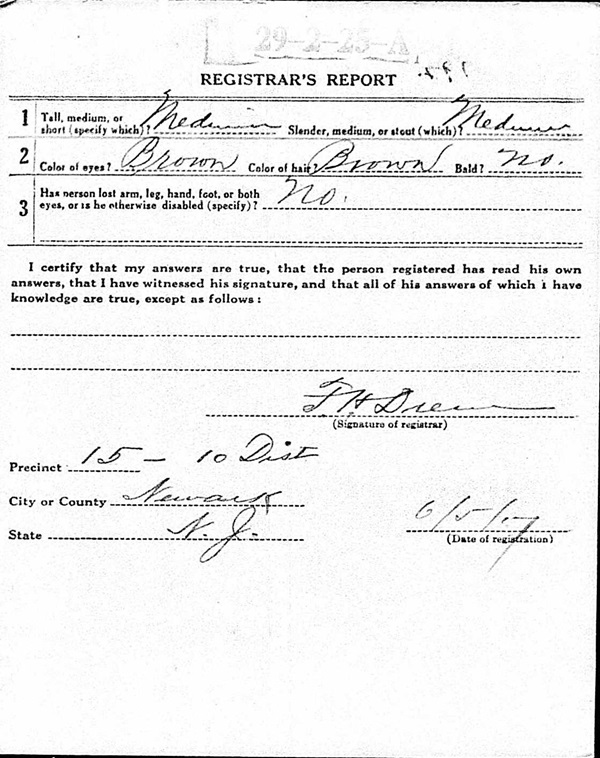 29-2-25-A
REGISTRAR'S REPORT
1 Tall, medium, or short (specify which)? Medium Slender, medium, or stout (which)? Medium
2 Color of eyes? Brown Color of hair Brown Bald? No.
3 Has person lost arm, leg, hand, foot, or both
eyes, or is he otherwise disabled (specify)? No.
I certify that my answers are true, that the person registered has read his own
answers, that I have witnessed his signature, and that all of his answers of which I have
knowledge are true, except as follows:
F H Drew
(Signature of registrar)
Precinct 15 - 10 Dist
City or County Newark
State N. J. 6/5/17
(Date of registration)